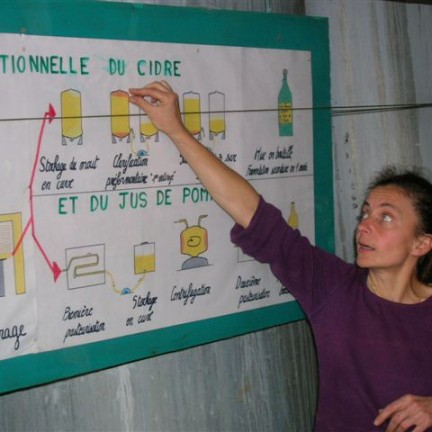 TIONNELLE DU CIDRE
Stockage du mout
en cuve
Clarification
préfermentaire
Mise en bouteille
Fermentation secondaire en
ET DU JUS DE POM
Première
pasteurisation
Stockage
en cuve
Centrifugation
Deuxième
pasteurisation
nage